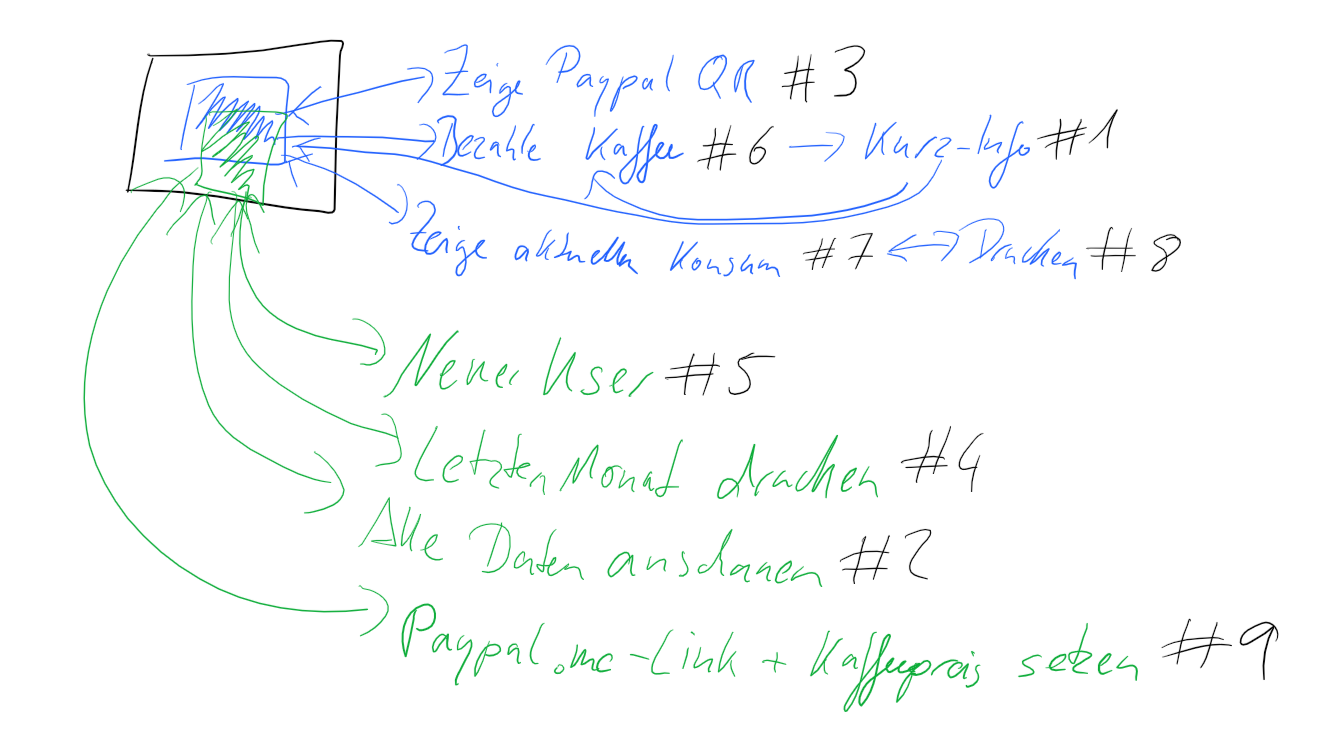 Zeige Paypal QR #3
Bezahle Kaffee #6 → Kurz-Info #1
Zeige aktuellen Konsum #7 ↔ Drucken #8
Neuer User #5
Letzten Monat drucken #4
Alle Daten anschauen #2
Paypal.me-Link + Kaffeepreis setzen #9